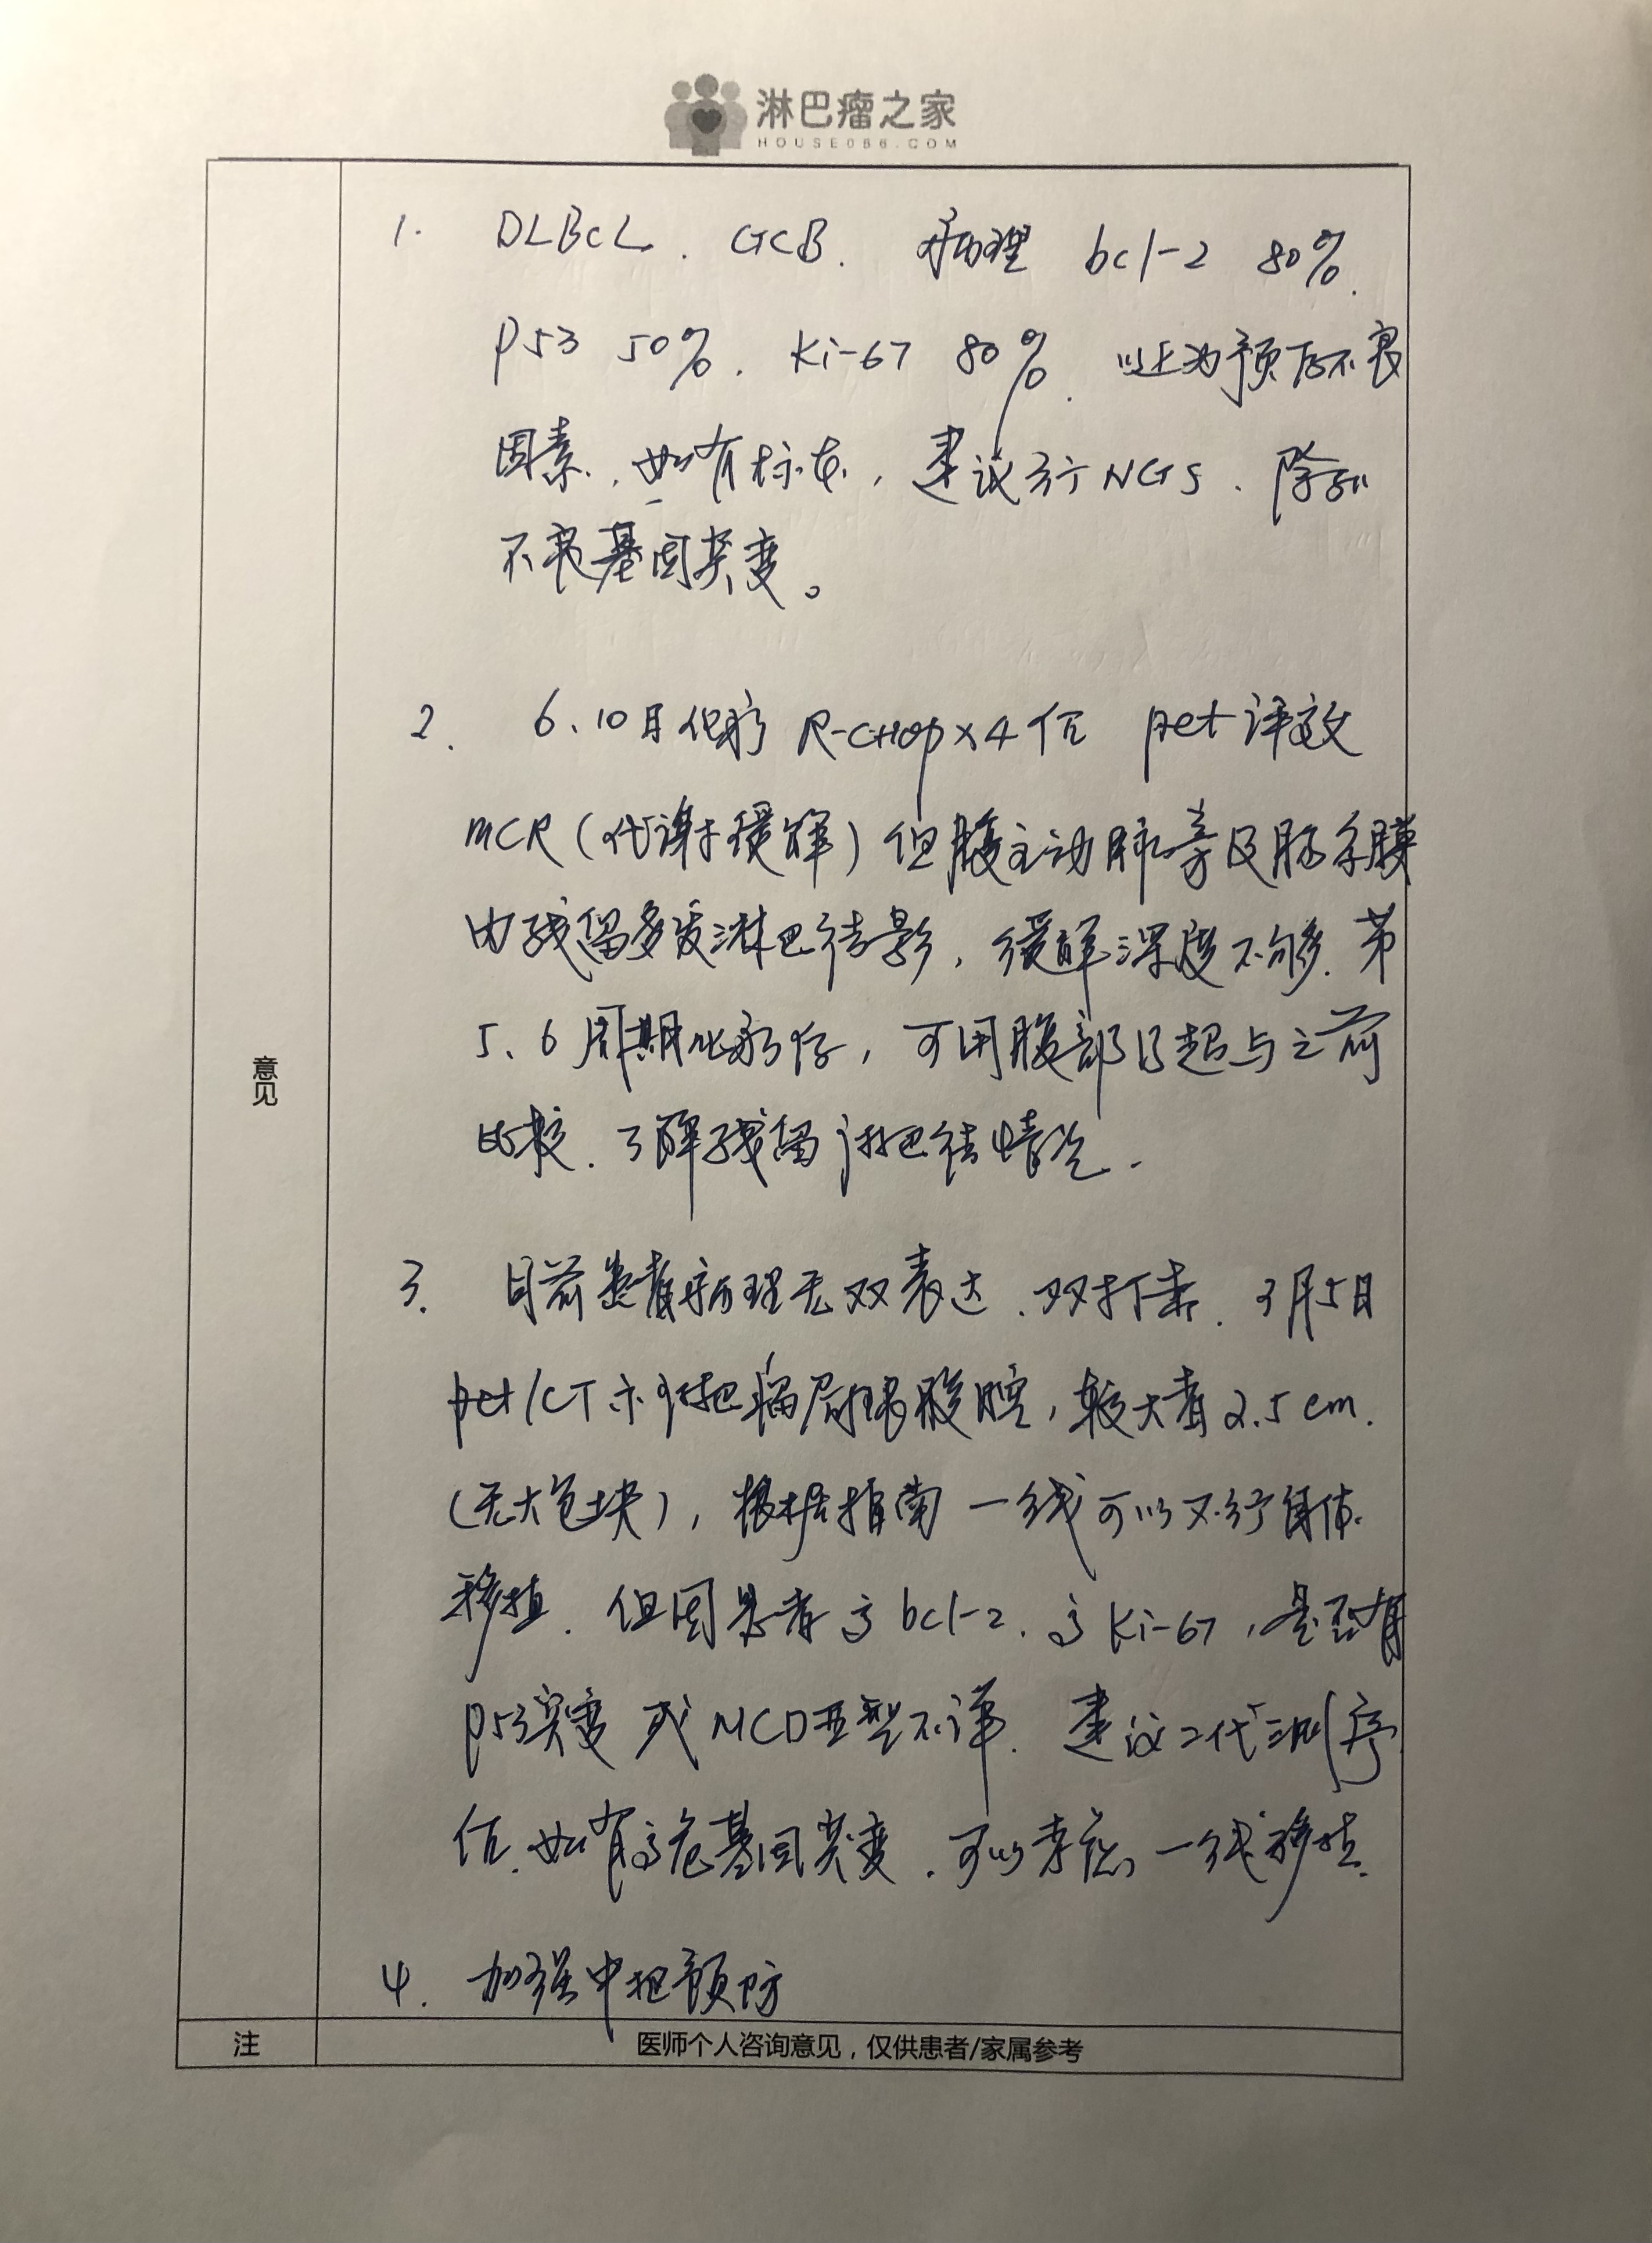 淋巴瘤之家
HOUSE086.COM
1. DLBCL. GCB. 病理 bcl-2 80%.
P53 50%. Ki-67 80%. 以上为预后不良
因素. 如有标本, 建议行NGS. 除外
不良基因突变。
2. 6.10日化疗 R-CHOP×4后 pet评效
mCR(代谢缓解)但腹主动脉旁及肠系膜
内残留多发淋巴结影, 缓解深度不够. 第
5、6周期化疗后, 可用腹部B超与之前
比较. 了解残留淋巴结情况.
意见
3. 目前患者病理无双表达. 双打击. 3月5日
pet/CT示淋巴瘤局限腹腔, 较大者2.5cm.
(无大包块), 根据指南一线可以不行自体
移植. 但因患者高bcl-2. 高Ki-67, 是否有
P53突变或MCD亚型不详. 建议二代测序
后. 如有高危基因突变. 可以考虑一线移植.
4. 加强中枢预防
注 医师个人咨询意见,仅供患者/家属参考